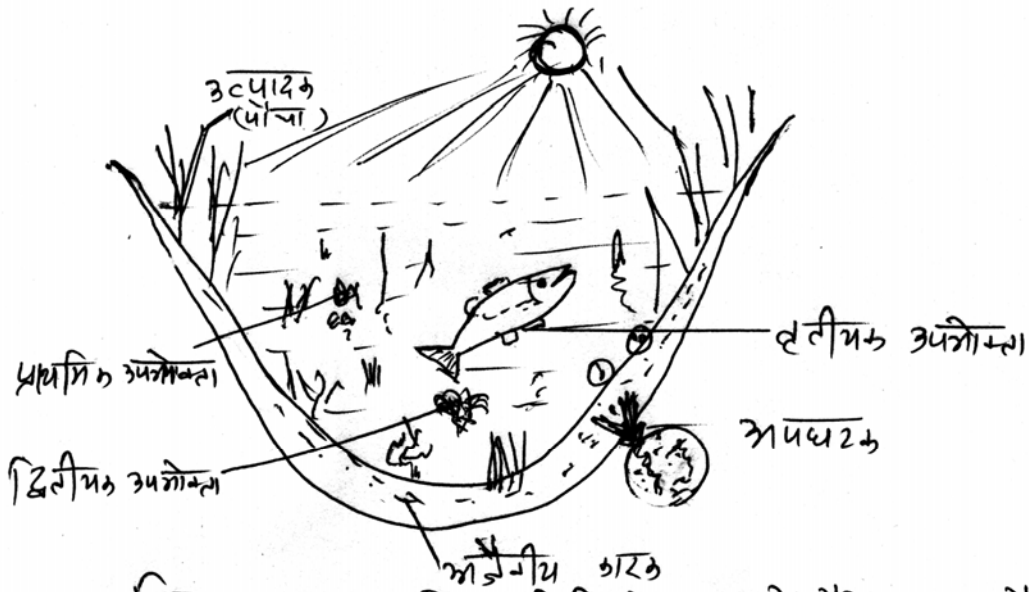 उत्पादक
(पौधा)
प्राथमिक उपभोक्ता
तृतीयक उपभोक्ता
अपघटक
द्वितीयक उपभोक्ता
अजैवनीय कारक